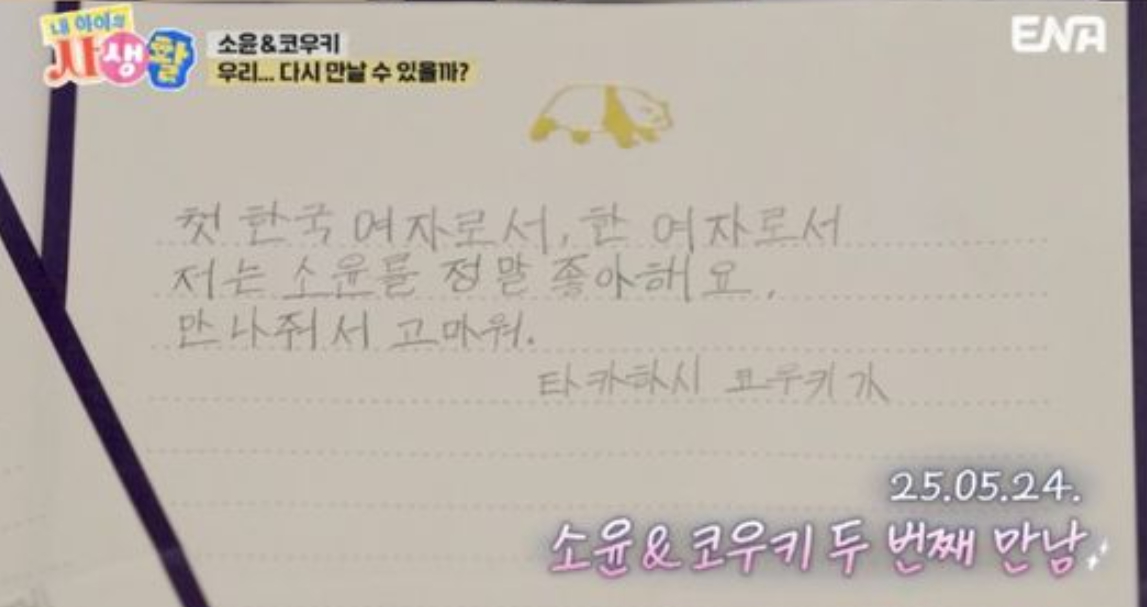 내 아이의
사생활
소윤&코우키
우리... 다시 만날 수 있을까?
ENA
첫 한국 여자로서, 한 여자로서
저는 소윤를 정말 좋아해요.
만나줘서 고마워.
타카하시 코우키가
25.05.24.
소윤&코우키 두 번째 만남